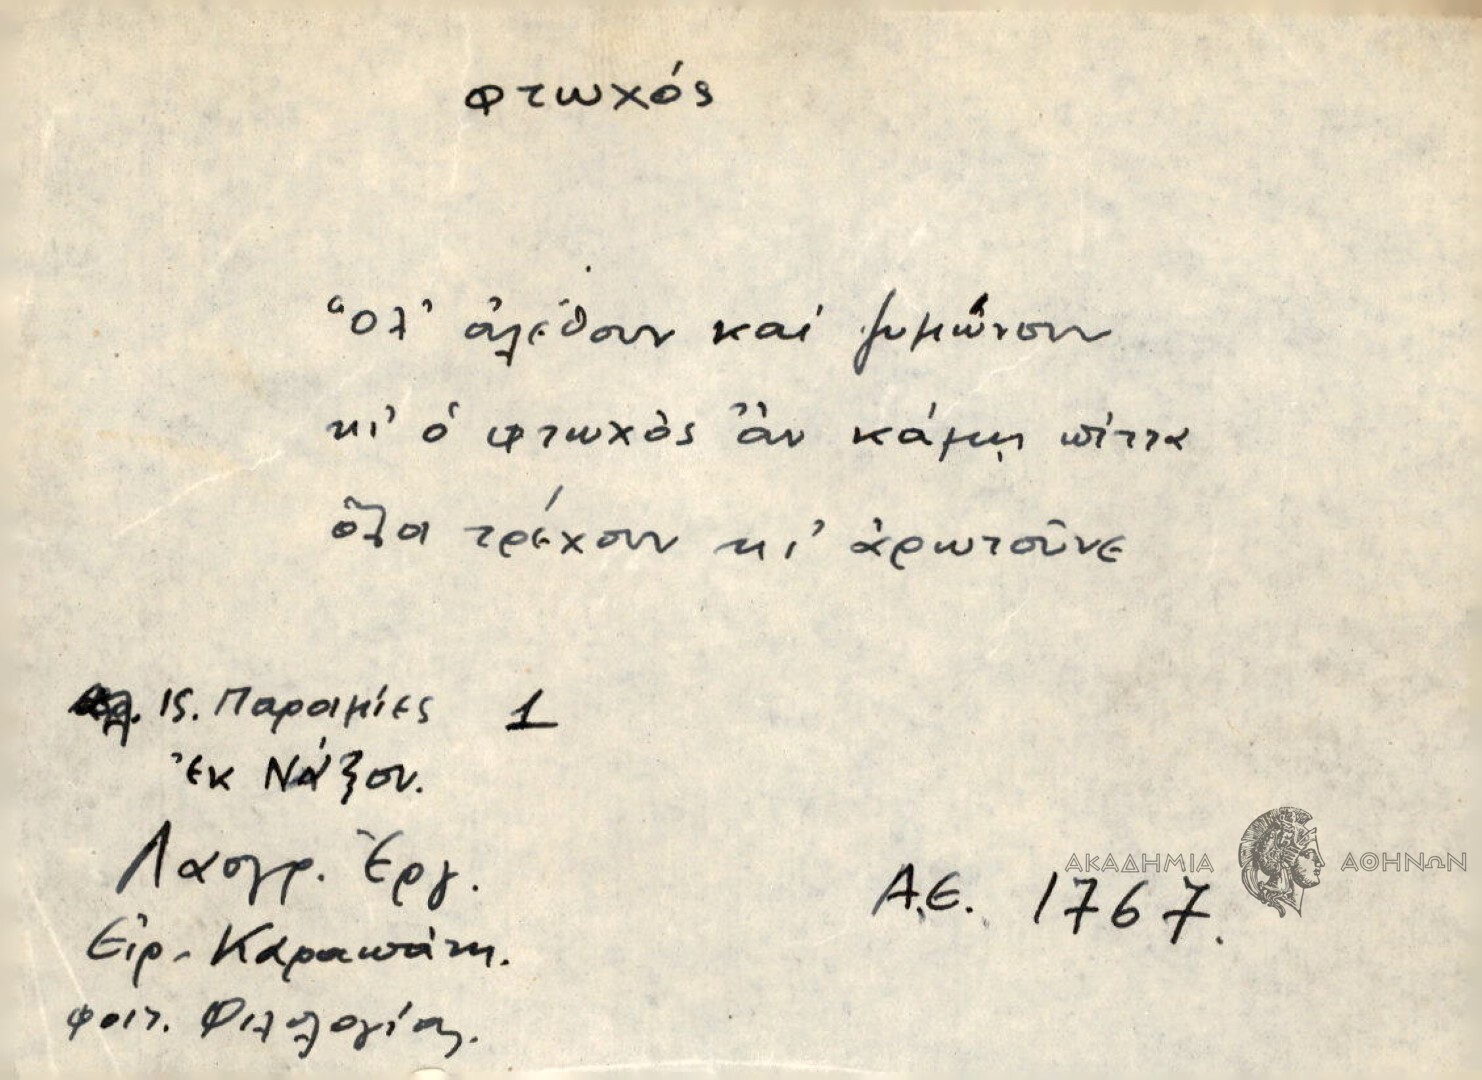 φτωχός
Ὅλ' ἀλέθουν καί ζυμώνουν
κι' ὁ φτωχὸς ἂν κάμῃ πίττα
ὅλα τρέχουν κι' ἀρωτοῦνε
15. Παροιμίες 1
ἐκ Νάξου.
Λαογρ. Ἔργ.
Εἰρ. Καραπάτη.
φοιτ. Φιλολογίας.
Α.Ε. 1767.
ΑΚΑΔΗΜΙΑ ΑΘΗΝΩΝ